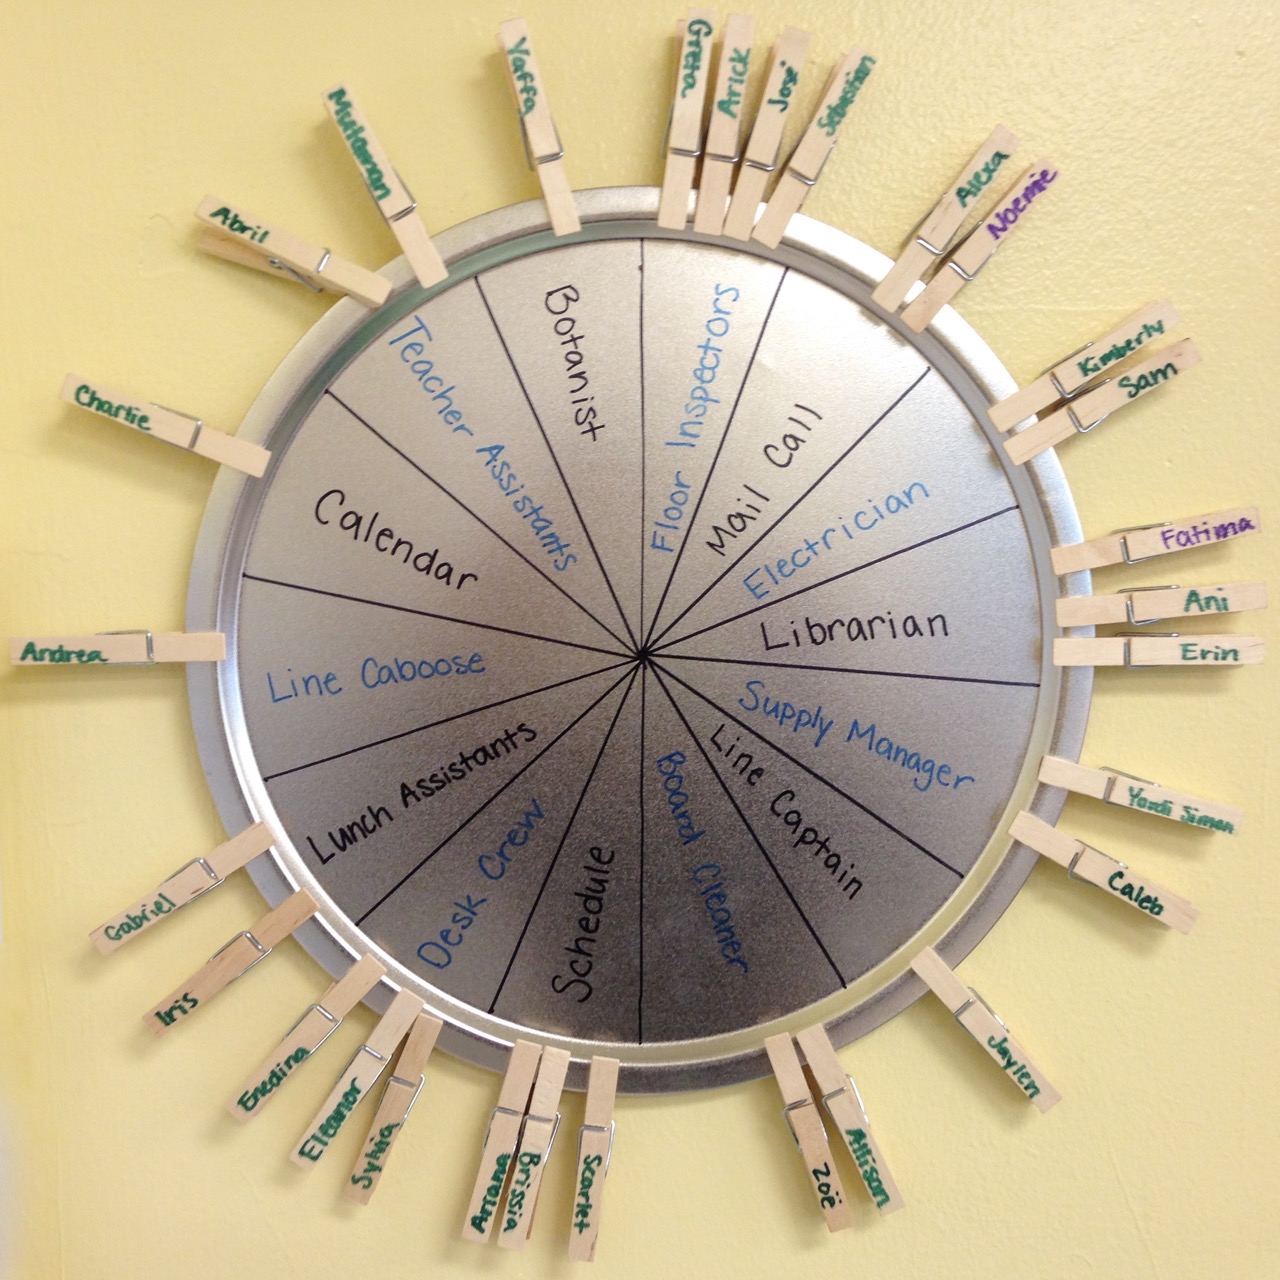 Yaffa
Greta
Arick
José
Sebastian
Alexa
Noemie
Kimberly
Sam
Fatima
Ani
Erin
Yordi Simon
Caleb
Jaylen
Allison
Zoë
Scarlet
Brissia
Amara
Sylvia
Eleanor
Enedina
Iris
Gabriel
Andrea
Charlie
Abril
Botanist
Floor Inspectors
Mail Call
Electrician
Librarian
Supply Manager
Line Captain
Board Cleaner
Schedule
Desk Crew
Lunch Assistants
Line Caboose
Calendar
Teacher Assistants